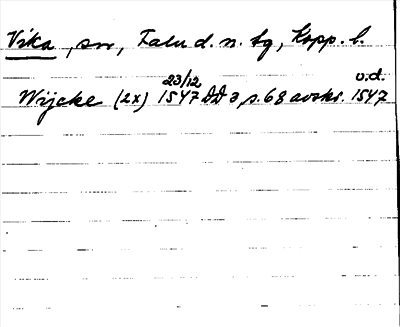 Vika, sn, Falu d. n. tg, Kopp. l.
23/12 o.d.
Wijcke (2x) 1547 DD 2, s. 68 avskr. 1547